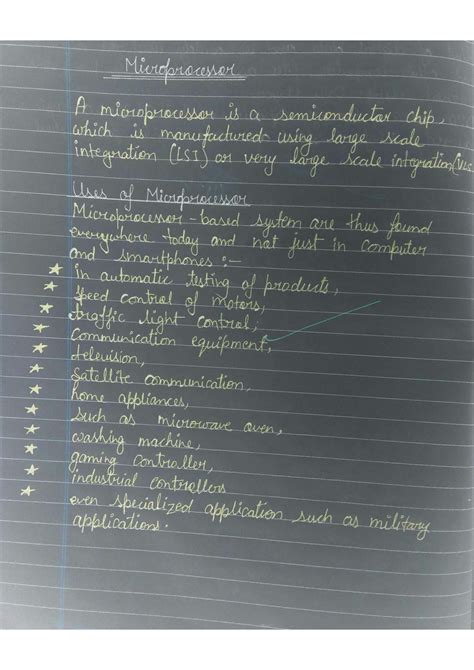 Microprocessor
A microprocessor is a semiconductor chip,
which is manufactured using large scale
integration (LSI) or very large scale integration (VLS
Uses of Microprocessor
Microprocessor-based system are thus found
everywhere today and not just in computer
and smartphones :-
★ in automatic testing of products,
★ speed control of motors,
★ traffic light control,
★ Communication equipment,
★ television,
★ Satellite communication,
★ home appliances,
★ such as microwave oven,
★ washing machine,
★ gaming controller,
★ industrial controllers
★ even specialized application such as military
applications.